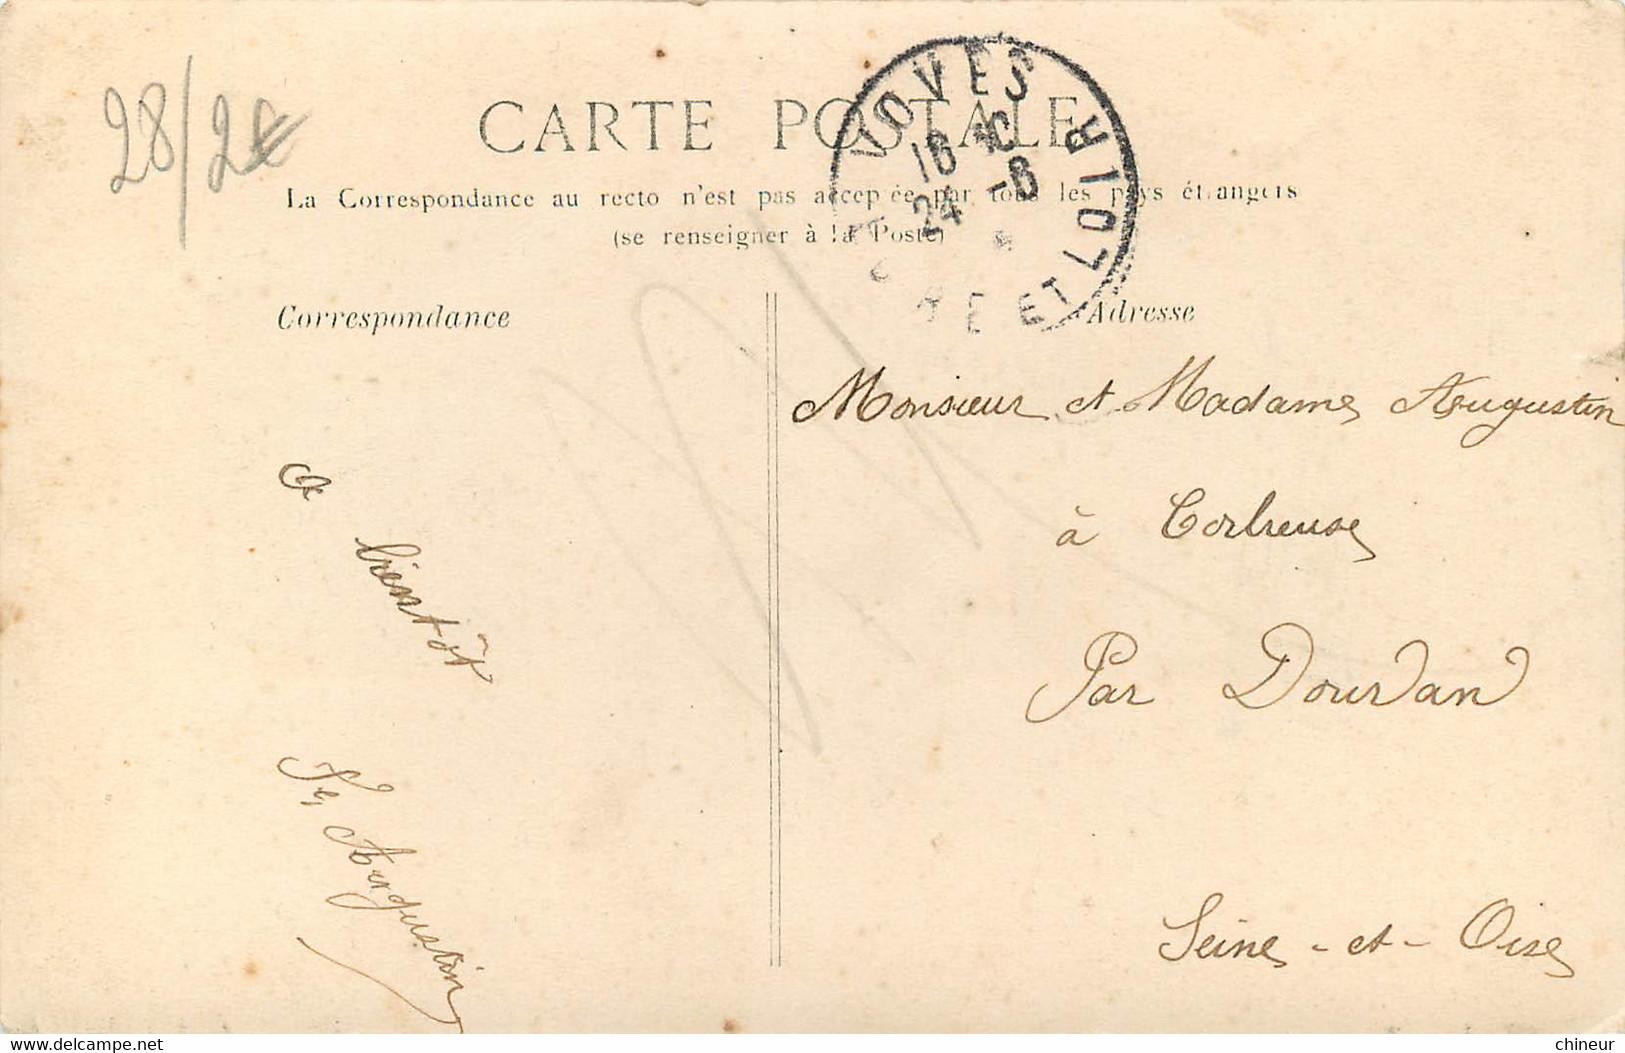 28/2€
CARTE POSTALE
La Correspondance au recto n'est pas acceptée par tous les pays étrangers
(se renseigner à la Poste)
VOVES
24 -6
EURE ET LOIR
Correspondance
Adresse
Monsieur et Madame Augustin
à Corbreuse
Par Dourdan
Seine-et-Oise
A bientôt
Augustin
www.delcampe.net
chineur